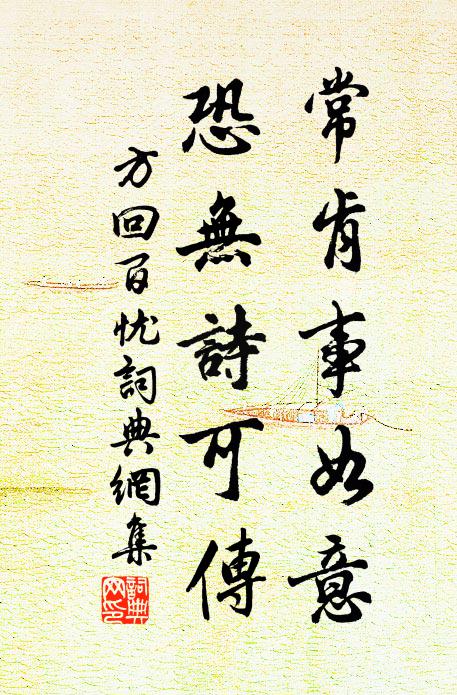 常肯事如意
恐無詩可傳
方回百忧詞典網集
詞典
网印